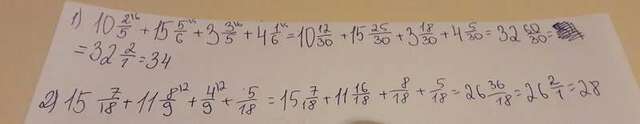 1) 10 2/5 + 15 5/6 + 3 3/5 + 4 1/6 = 10 12/30 + 15 25/30 + 3 18/30 + 4 5/30 = 32 60/30 =
= 32 2/1 = 34
2) 15 7/18 + 11 8/9 + 4/9 + 5/18 = 15 7/18 + 11 16/18 + 8/18 + 5/18 = 26 36/18 = 26 2/1 = 28